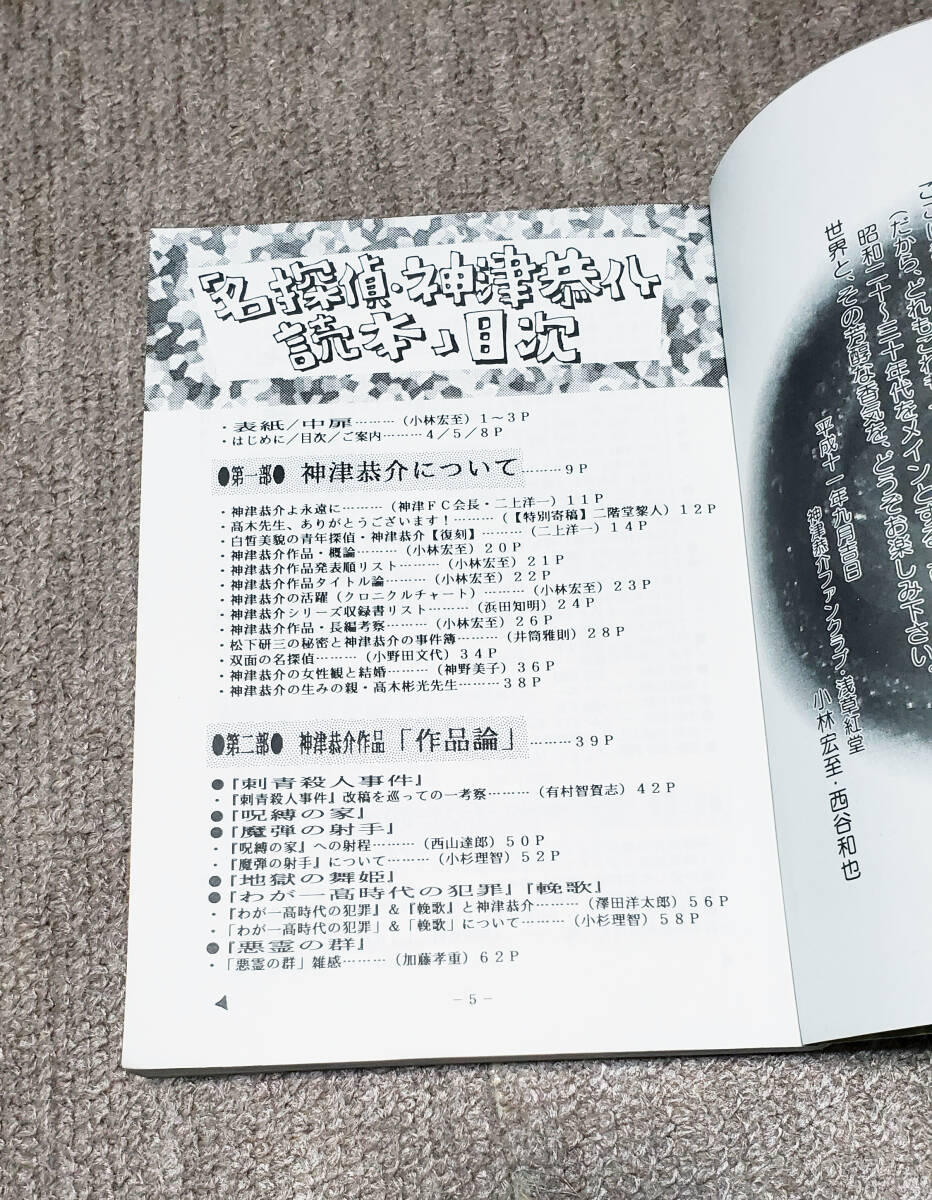 「名探偵・神津恭介
読本」目次
・表紙/中扉………(小林宏至)1〜3P
・はじめに/目次/ご案内………4/5/8P
●第一部● 神津恭介について………9P
・神津恭介よ永遠に………(神津FC会長・二上洋一)11P
・高木先生、ありがとうございます!………(【特別寄稿】二階堂黎人)12P
・白皙美貌の青年探偵・神津恭介【復刻】………(二上洋一)14P
・神津恭介作品・概論………(小林宏至)20P
・神津恭介作品発表順リスト………(小林宏至)21P
・神津恭介作品タイトル論………(小林宏至)22P
・神津恭介の活躍(クロニクルチャート)………(小林宏至)23P
・神津恭介シリーズ収録書リスト………(浜田知明)24P
・神津恭介作品・長編考察………(小林宏至)26P
・松下研三の秘密と神津恭介の事件簿………(井筒雅則)28P
・双面の名探偵………(小野田文代)34P
・神津恭介の女性観と結婚………(神野美子)36P
・神津恭介の生みの親・高木彬光先生………38P
●第二部● 神津恭介作品「作品論」………39P
●『刺青殺人事件』
・『刺青殺人事件』改稿を巡っての一考察………(有村智賀志)42P
●『呪縛の家』
●『魔弾の射手』
・『呪縛の家』への射程………(西山達郎)50P
・『魔弾の射手』について………(小杉理智)52P
●『地獄の舞姫』
●『わが一高時代の犯罪』『輓歌』
・『わが一高時代の犯罪』&『輓歌』と神津恭介………(澤田洋太郎)56P
・「わが一高時代の犯罪」&「輓歌」について………(小杉理智)58P
●『悪霊の群』
・「悪霊の群」雑感………(加藤孝重)62P
−5−
(だから、どれもこれも
昭和二十〜三十年代をメインとする
世界と、その芳醇な香気を、どうぞお楽しみ下さい。
平成十一年九月吉日
神津恭介ファンクラブ・浅草紅堂
小林宏至・西谷和也